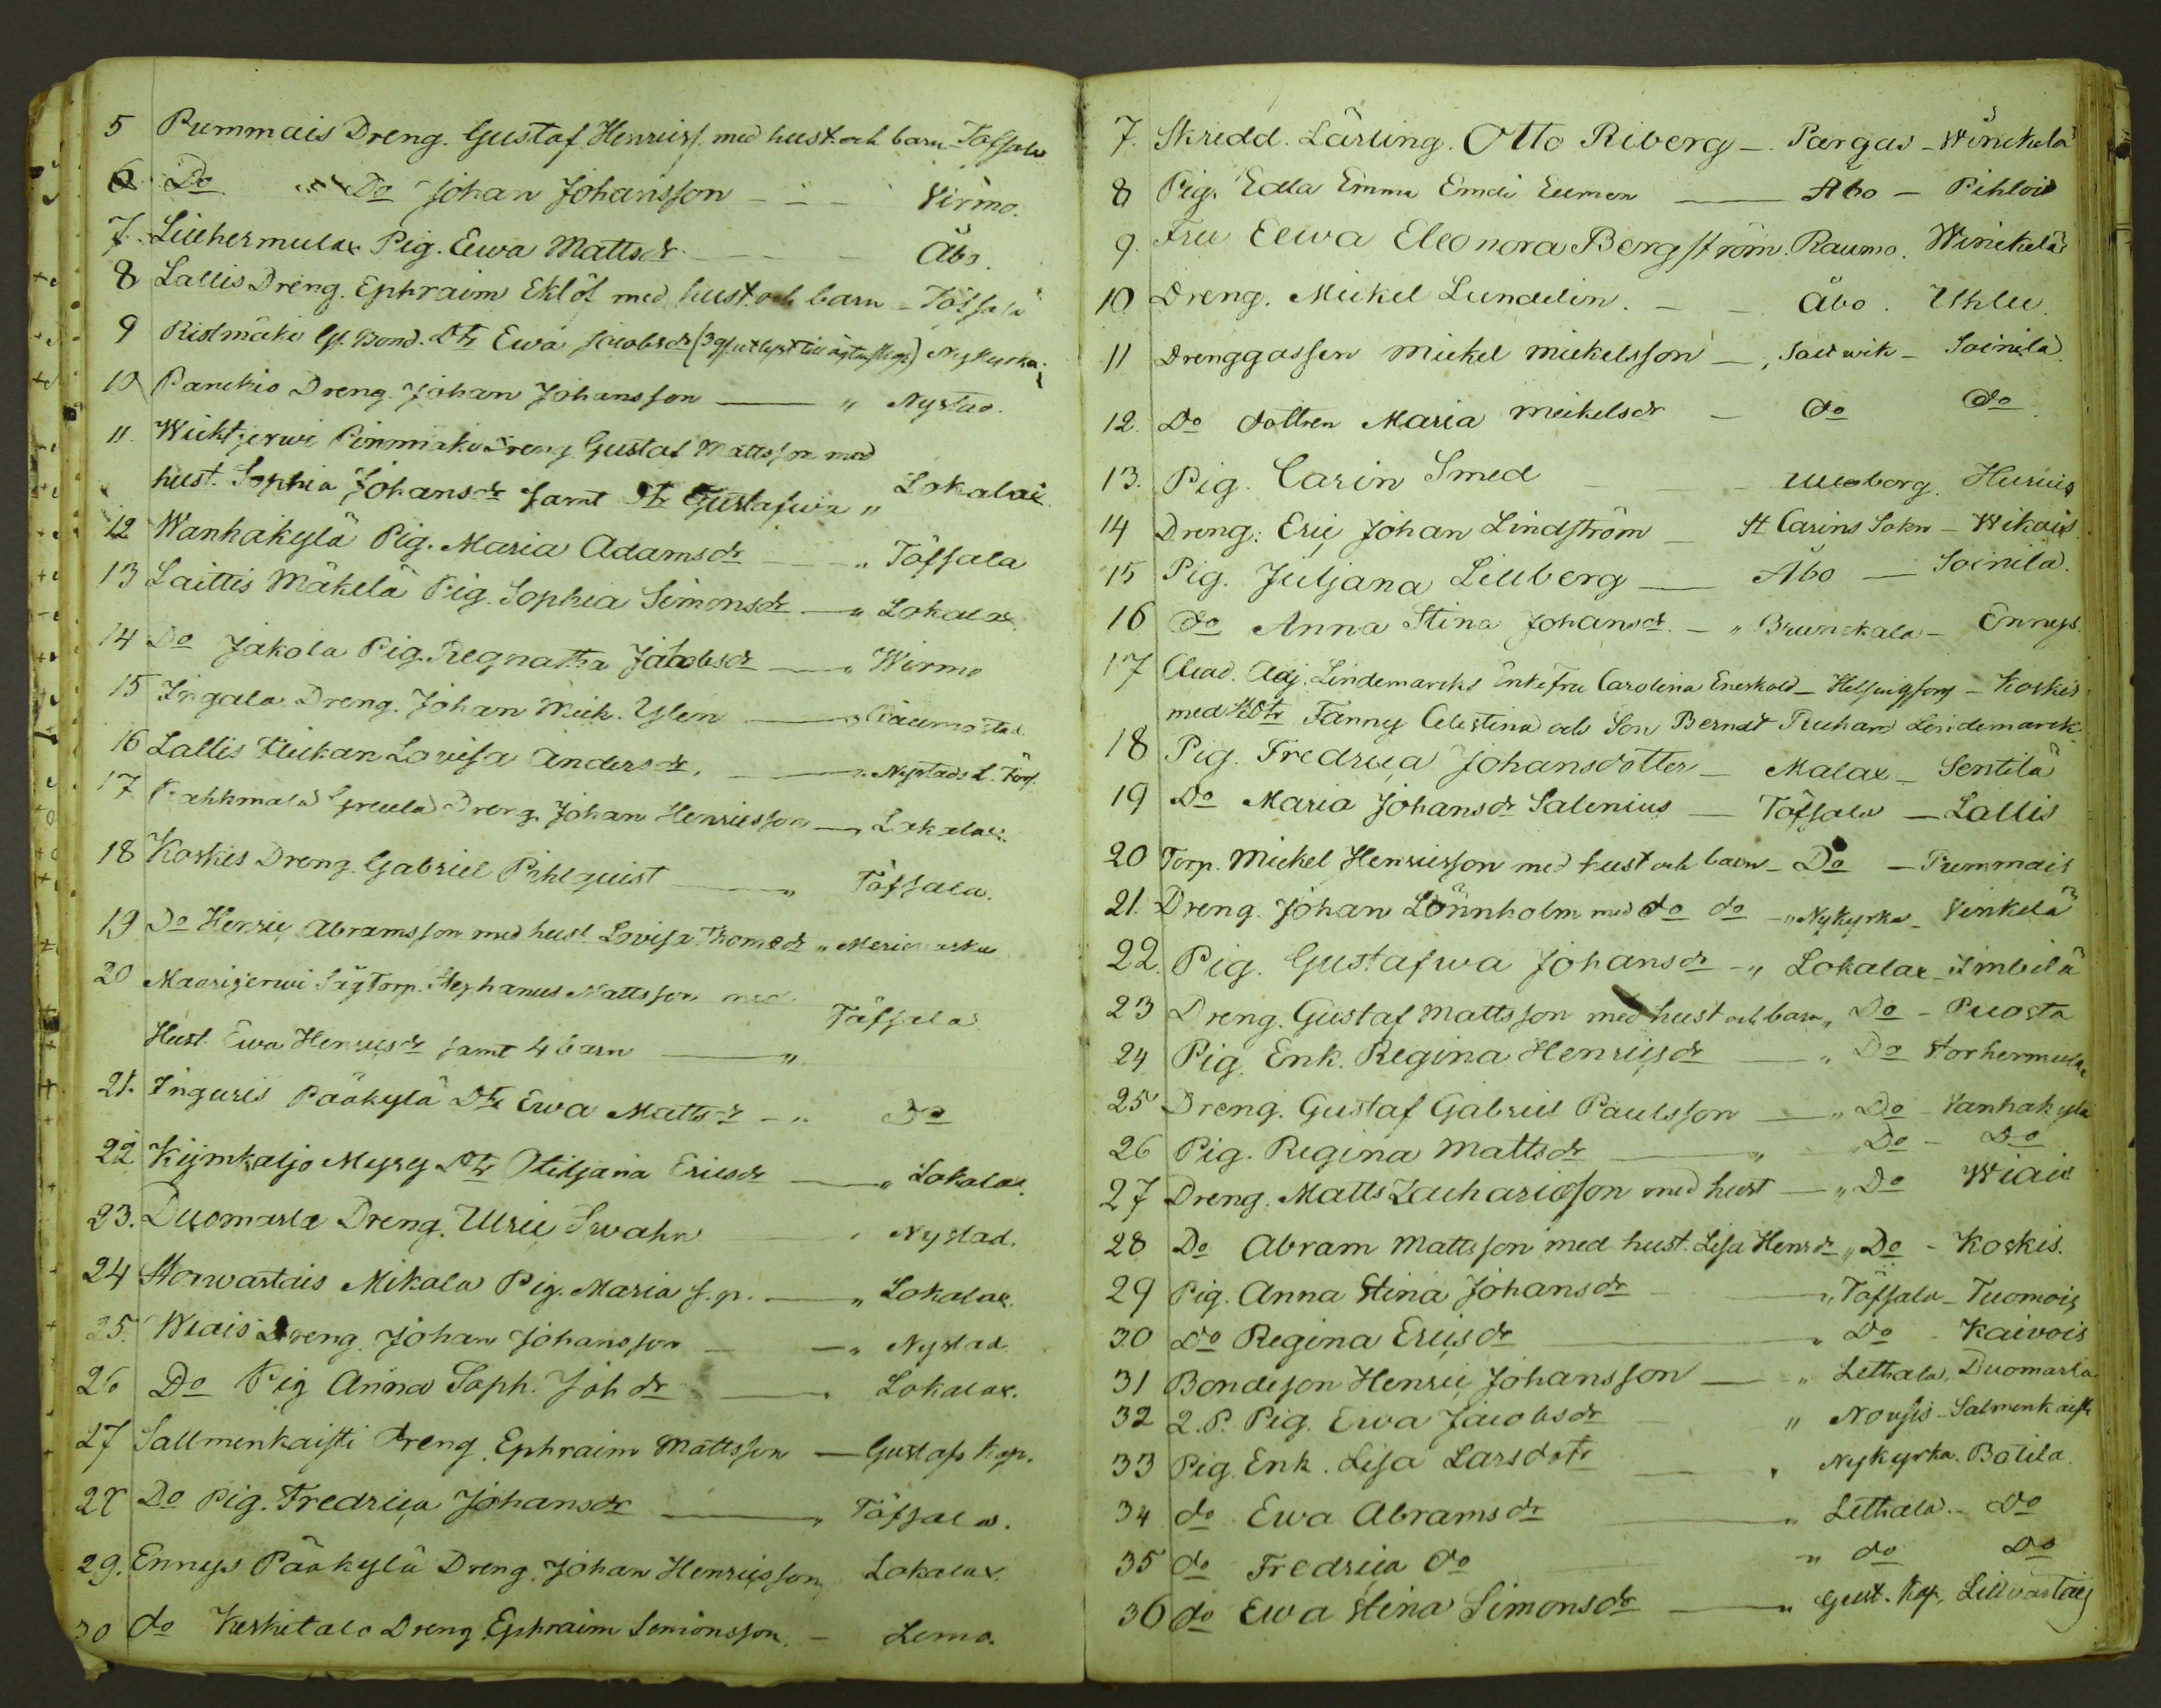 5 Pummais Dreng. Gustaf Henrics. med hust. och barn - Töfsala
6 Do " Do Johan Johansson - - - Virmo.
7. Lillhermulax Pig. Ewa Mattsdr - - - Åbo.
8 Lallis Dreng. Ephraim Eklöf med hust. och barn - Töfsala
9 Ristmäki Bond. Dtr Ewa Jacobsdr Nykyrka.
10 Panckio Dreng. Johan Johansson — " Nystad.
11. Wicktjerwi Dreng Gustaf Mattsson med
hust. Sophia Johansdr samt Dtr Gustafwa " Lokalax.
12 Wanhakylä Pig. Maria Adamsdr - - " Töfsala
13 Laittis Mäkelä Pig. Sophia Simonsdr — " Lokalax.
14 Do Jakola Pig. Regnatha Jacobsdr — " Wirmo
15 Ingala Dreng. Johan Mick. Ylen — " Raumo stad.
16 Lallis Flickan Lovisa Andersdr. — " Nystads L. Förs.
17 Dreng. Johan Henricsson — " Lokalax.
18 Koskis Dreng. Gabriel Pihlquist — " Töfsala.
19 Do Henric Abramsson med hust. Lovisa Thomasdr "
20 Maarijerwi Torp. Stephanus Mattsson med
Hust. Ewa Henricsdr samt 4 barn — " Töfsala
21. Inguris Pääkylä Dtr Ewa Mattsdr - " Do
22. Kijmkaljo Myry Dtr Otiljana Ericsdr — " Lokalax.
23. Duomarla Dreng. Ulric Swahn — " Nystad.
24 Storwartais Mikala Pig. Maria s.p. — " Lokalax.
25. Wiais Dreng. Johan Johansson — " Nystad.
26 Do Pig Anna Soph. Joh dr — " Lokalax.
27 Saltmenkaisti Dreng. Ephraim Mattsson — Gustafs Kap.
28 Do Pig. Fredrica Johansdr — " Töfsala.
29. Ennys Pääkylä Dreng. Johan Henricsson, Lokalax.
30 do Keskitalo Dreng Ephraim Simonsson. - Lemo.
7. Skredd. Lärling. Otto Riberg — Pargas - Winckelä
8 Pig. Edla Emma — Åbo - Pihlois
9. Fru Eewa Eleonora Bergström. Raumo. Winckelä
10 Dreng. Mickel Lundelin. - - Åbo. Uhlu.
11 Drenggossen Mickel Mickelsson - Soinila
12. Do dottren Maria Mickelsdr - do do
13. Pig. Carin Smed - - Uleoborg. Hurnis
14 Dreng. Eric Johan Lindström - St Carins Sokn - Wikais
15 Pig. Juljana Lillberg — Åbo — Soinila.
16 do Anna Stina Johansdr. - " Brunckala - Ennys.
17 Acad. Adj. Lindemarcks Enkefru Carolina Enesköld - Helsingfors - Koskis
med Dtr Fanny Celestina och Son Berndt Richard Lindemarck
18 Pig. Fredrica Johansdotter - Malax - Sentilä
19 Do Maria Johansdr Salenius — Töfsala — Lallis
20 Torp. Mickel Henricsson med hust och barn - Do - Pummais
21. Dreng. Johan Lönnholm med do do - " Nykyrka - Vinkelä
22. Pig. Gustafwa Johansdr - " Lokalax - Imbilä
23 Dreng. Gustaf Mattsson med hust och barn " Do - Puosta
24 Pig. Enk. Regina Henricsdr — " Do Storhermulax
25 Dreng. Gustaf Gabriel Paulsson — " Do - Vanhakylä
26 Pig. Regina Mattsdr — " Do - Do
27 Dreng. Matts Zachariesson med hust — " Do Wiais
28 Do Abram Mattsson med hust. Lisa Henrdr " Do - Koskis.
29 Pig. Anna Stina Johansdr — " Töfsala - Tuomois
30 Do Regina Ericsdr — " Do - Kaivois
31 Bondeson Henric Johansson — " Lethala, Duomarla
32 2. P. Pig. Ewa Jacobsdr " Nousis - Salmenkaisti
33 Pig. Enk. Lisa Larsdotr — " Nykyrka. Botila.
34 do Ewa Abramsdr — " Lethala - Do
35 do Fredrica do " do Do
36 do Ewa Stina Simonsdr — " Gust. Kap. Lillvartais